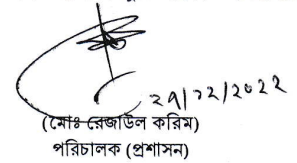 ২৯/১২/২০২২
(মোঃ রেজাউল করিম)
পরিচালক (প্রশাসন)